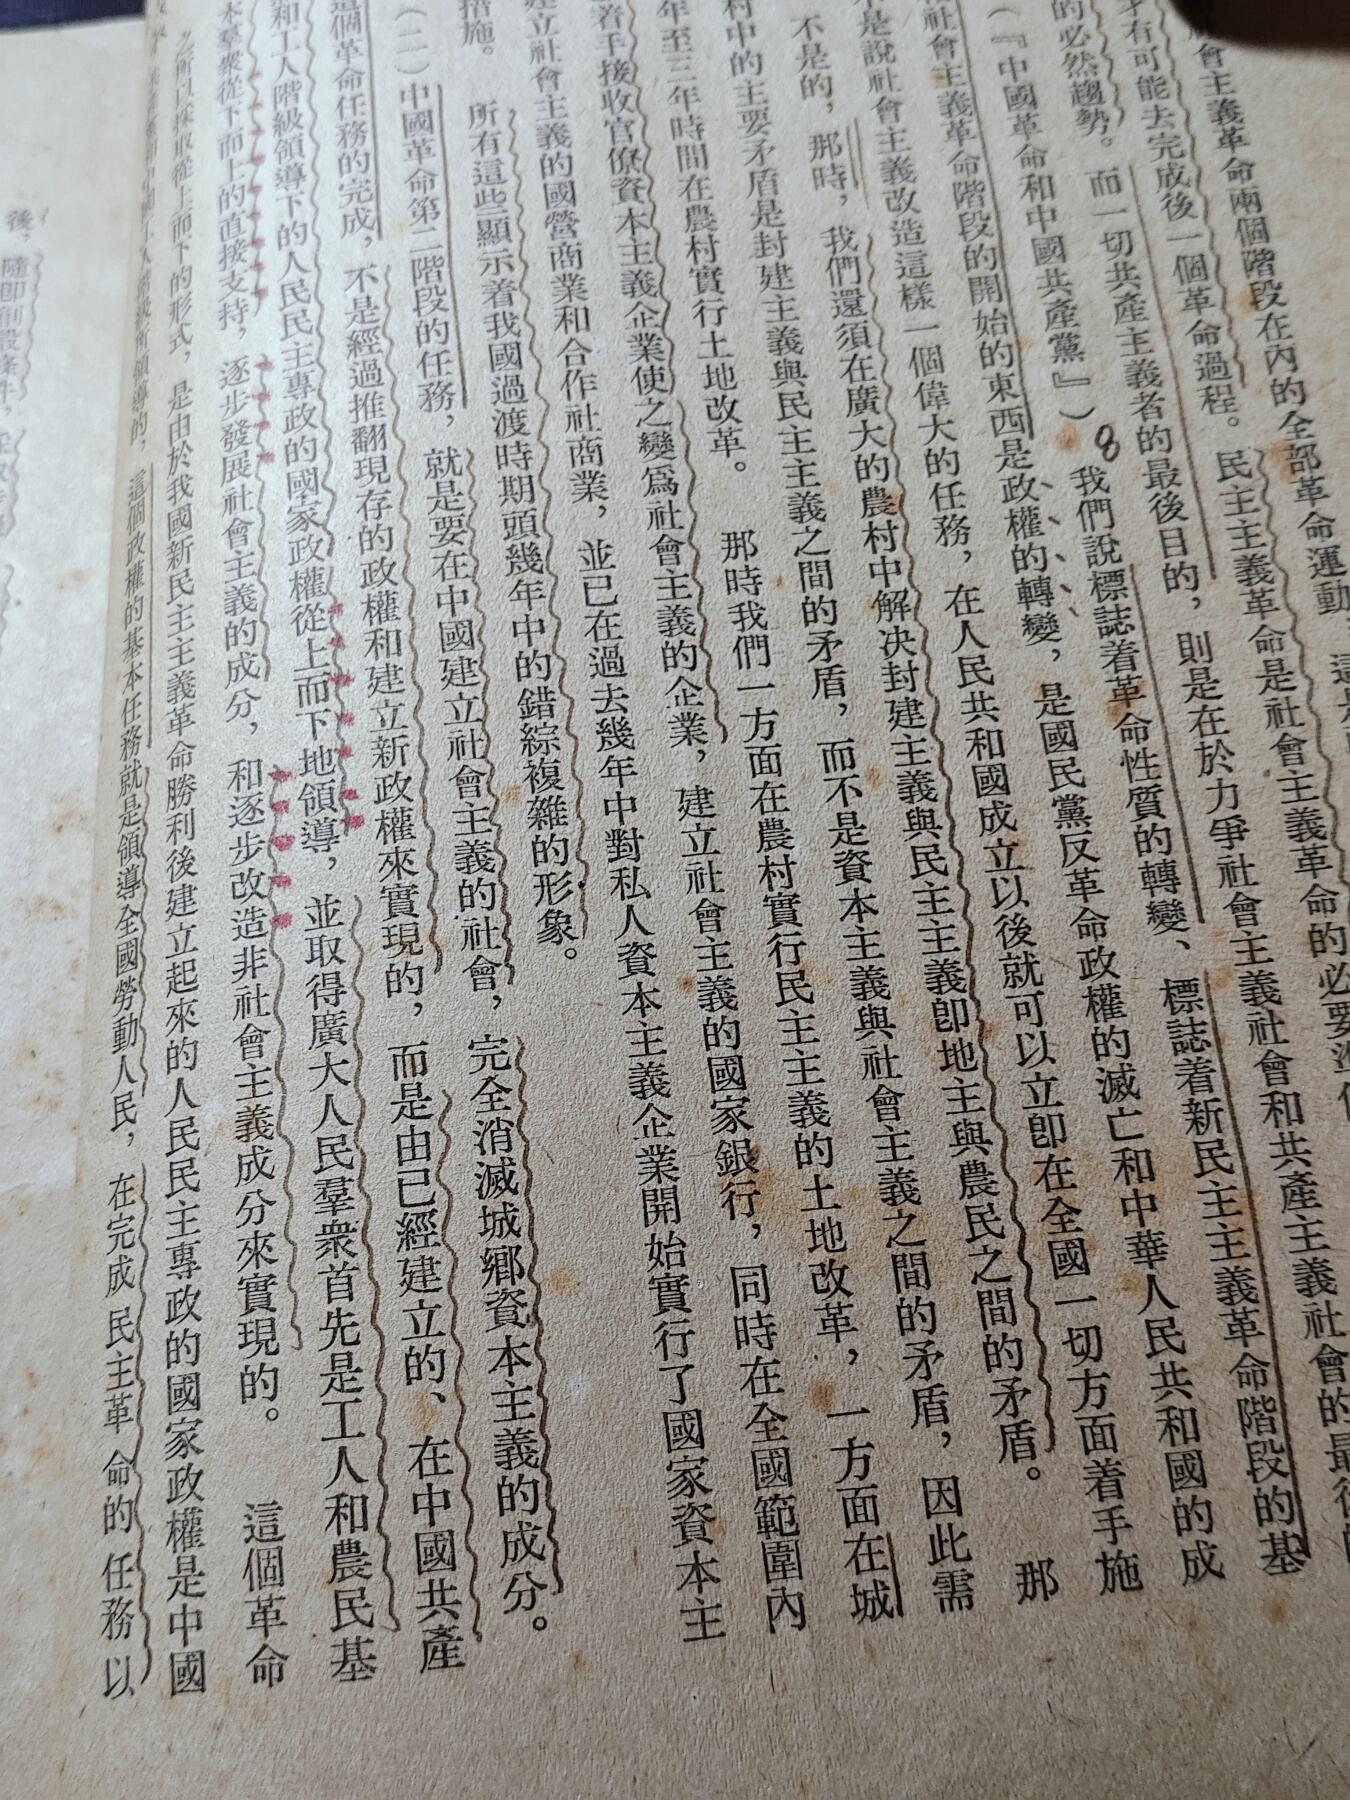 會主義革命兩個階段在內的全部革命運動
才有可能去完成後一個革命過程。民主主義革命是社會主義革命的必要準備
的必然趨勢。而一切共產主義者的最後目的，則是在於力爭社會主義社會和共產主義社會的最後的
（『中國革命和中國共產黨』）8我們說標誌着革命性質的轉變、標誌着新民主主義革命階段的基
社會主義革命階段的開始的東西是政權的轉變，是國民黨反革命政權的滅亡和中華人民共和國的成
是說社會主義改造這樣一個偉大的任務，在人民共和國成立以後就可以立卽在全國一切方面着手施
不是的，那時，我們還須在廣大的農村中解決封建主義與民主主義卽地主與農民之間的矛盾。那
村中的主要矛盾是封建主義與民主主義之間的矛盾，而不是資本主義與社會主義之間的矛盾，因此需
年至三年時間在農村實行土地改革。那時我們一方面在農村實行民主主義的土地改革，一方面在城
着手接收官僚資本主義企業使之變爲社會主義的企業，建立社會主義的國家銀行，同時在全國範圍內
建立社會主義的國營商業和合作社商業，並已在過去幾年中對私人資本主義企業開始實行了國家資本主
措施。所有這些顯示着我國過渡時期頭幾年中的錯綜複雜的形象。
（二）中國革命第二階段的任務，就是要在中國建立社會主義的社會，完全消滅城鄉資本主義的成分。
這個革命任務的完成，不是經過推翻現存的政權和建立新政權來實現的，而是由已經建立的、在中國共產
和工人階級領導下的人民民主專政的國家政權從上而下地領導，並取得廣大人民羣衆首先是工人和農民基
本羣衆從下而上的直接支持，逐步發展社會主義的成分，和逐步改造非社會主義成分來實現的。這個革命
之所以採取從上而下的形式，是由於我國新民主主義革命勝利後建立起來的人民民主專政的國家政權是中國
工人階級所領導的，這個政權的基本任務就是領導全國勞動人民，在完成民主革命的任務以
後，隨卽創設條件，